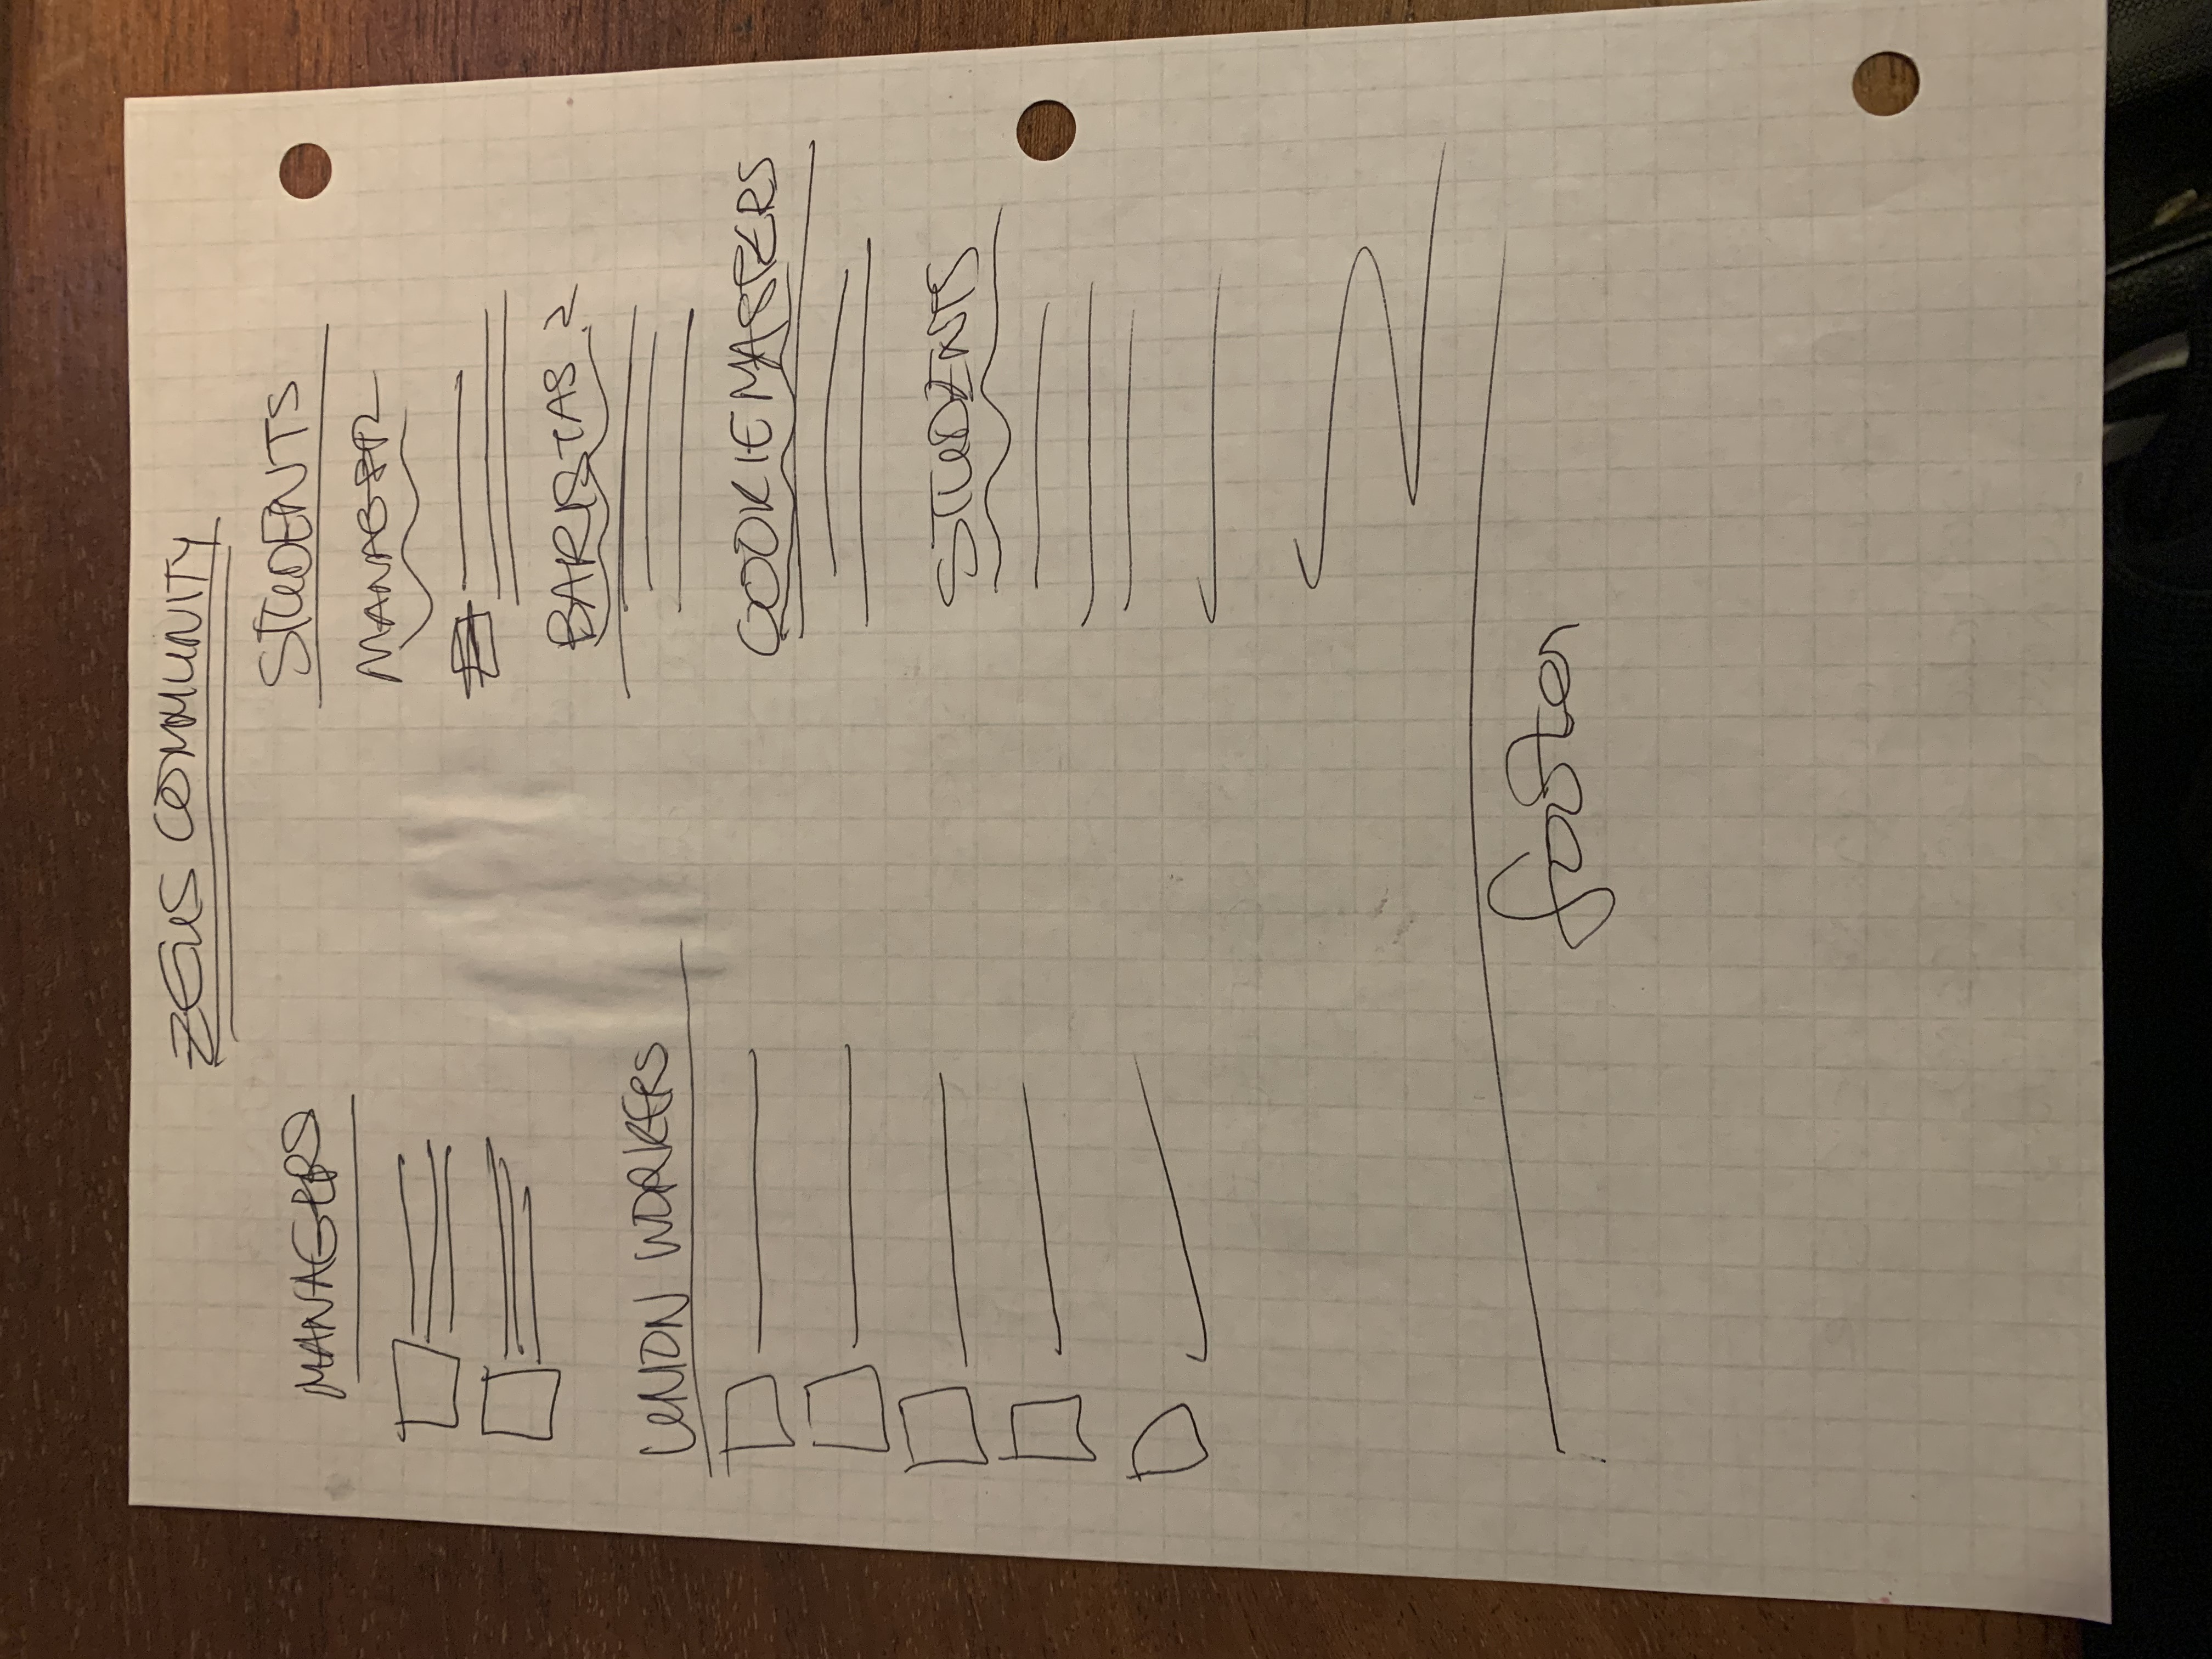 ZEUS COMMUNITY
MANAGERS
UNION WORKERS
STUDENTS
MANAGER
BARISTAS 2
COOKIEMASTERS
STUDENTS
footer